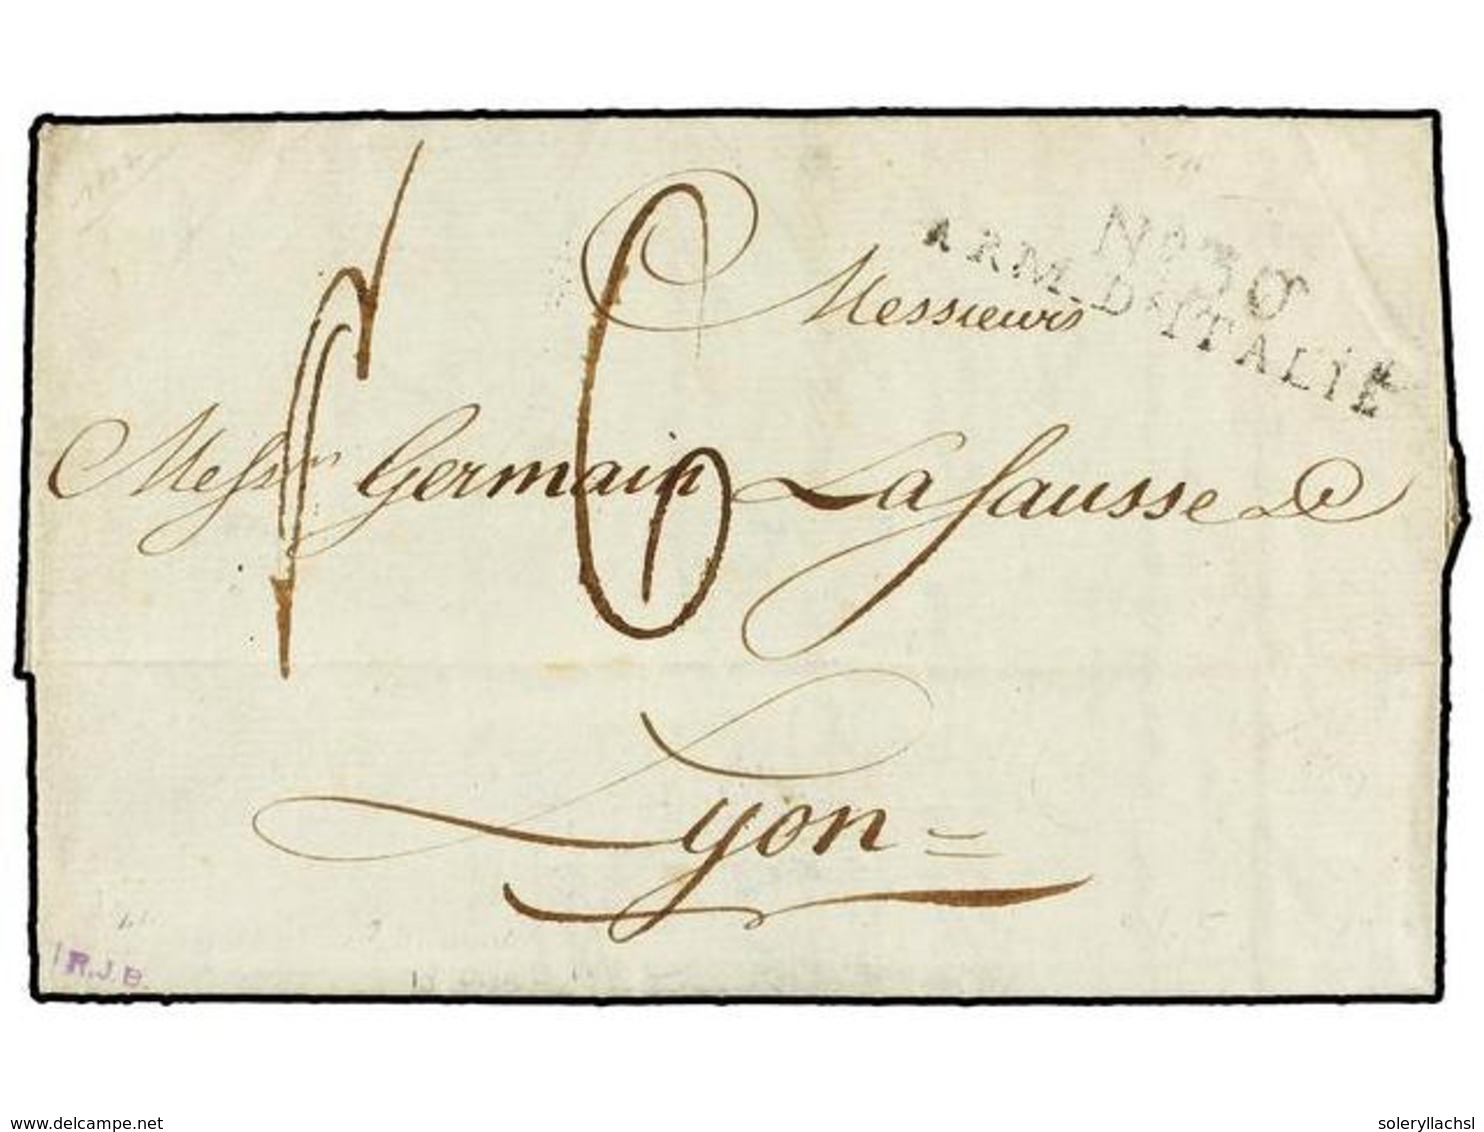 Nº 30
ARM. D'ITALIE
Messieurs
Messrs Germain Lafausse &
6
Lyon =
R.J.B.
delcampe.net
soleryllachsl